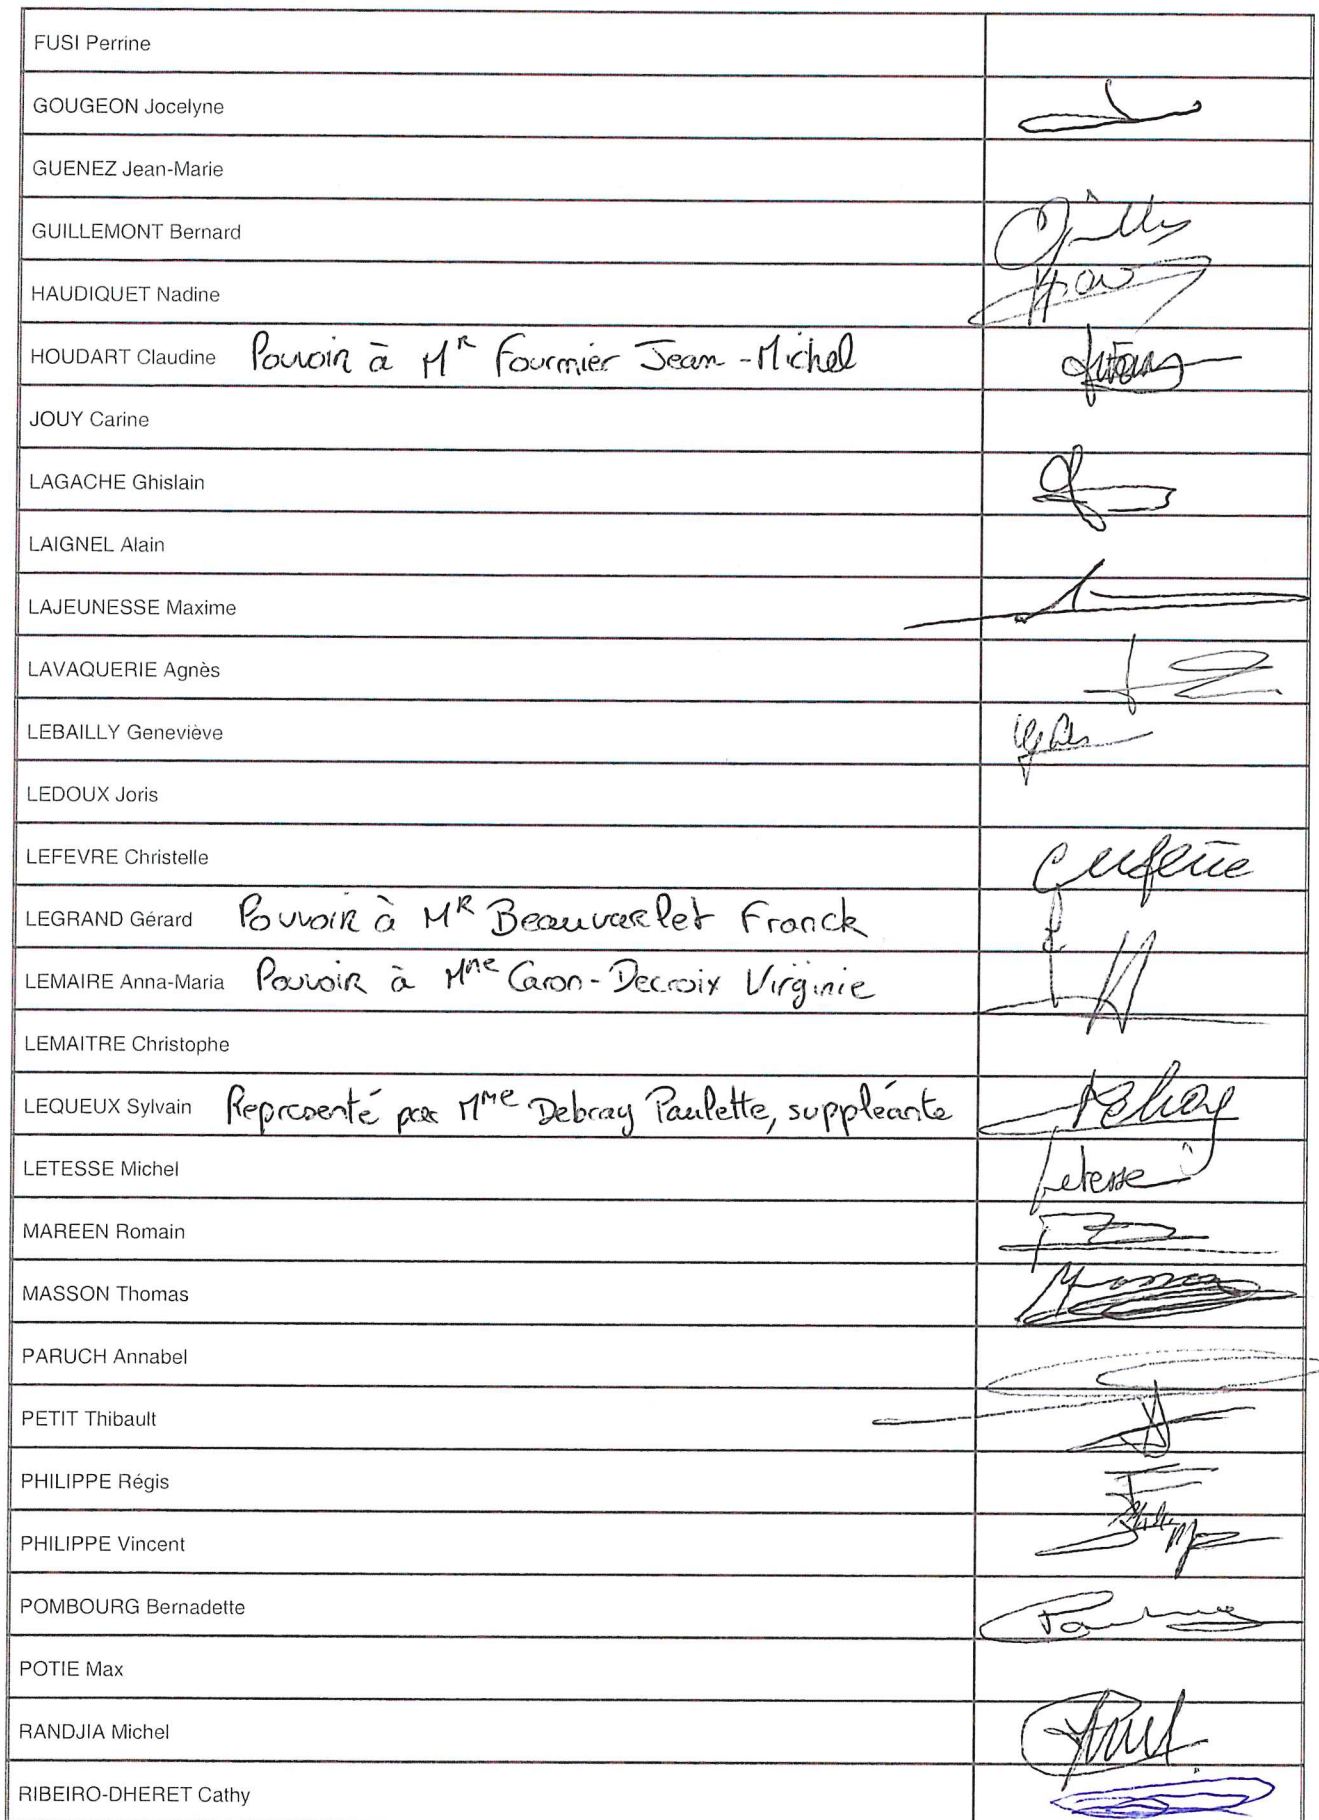 FUSI Perrine
GOUGEON Jocelyne
GUENEZ Jean-Marie
GUILLEMONT Bernard
HAUDIQUET Nadine
HOUDART Claudine Pouvoir à Mr Fournier Jean-Michel
JOUY Carine
LAGACHE Ghislain
LAIGNEL Alain
LAJEUNESSE Maxime
LAVAQUERIE Agnès
LEBAILLY Geneviève
LEDOUX Joris
LEFEVRE Christelle
LEGRAND Gérard Pouvoir à MR Beauvarlet Franck
LEMAIRE Anna-Maria Pouvoir à Mme Caron-Decroix Virginie
LEMAITRE Christophe
LEQUEUX Sylvain Représenté par Mme Debray Paulette, suppléante
LETESSE Michel Letesse
MAREEN Romain
MASSON Thomas
PARUCH Annabel
PETIT Thibault
PHILIPPE Régis
PHILIPPE Vincent
POMBOURG Bernadette
POTIE Max
RANDJIA Michel
RIBEIRO-DHERET Cathy